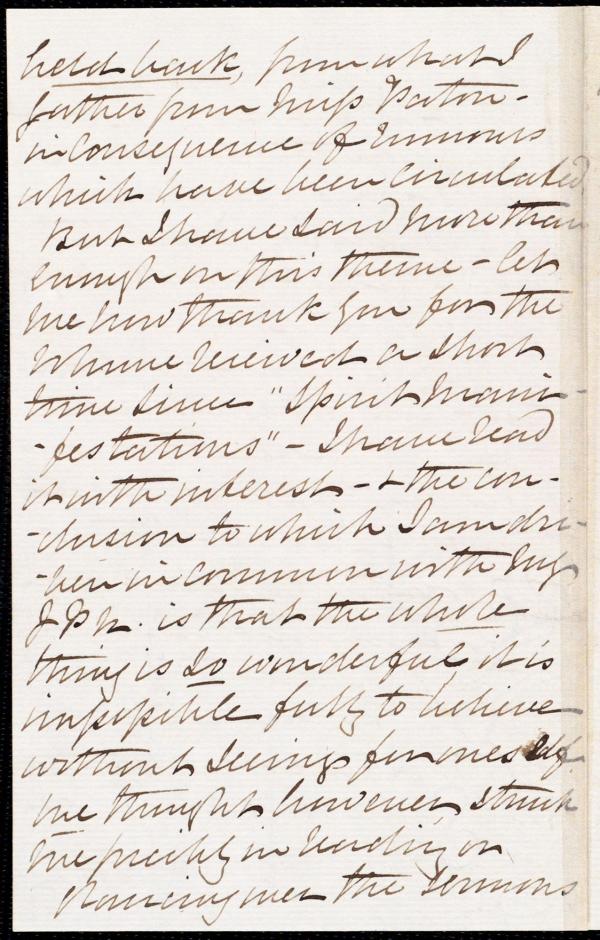 held back, from what I
gather from Miss Paton -
in consequence of rumours
which have been circulated
But I have said more than
enough on this theme - let
me now thank you for the
Volume received a short
time since "Spirit Mani-
-festations" - I have read
it with interest - & the con-
-clusion to which I am dri-
-ven in common with my
is that the whole
thing is so wonderful, it is
impossible fully to believe
without seeing for oneself.
One thought however struck
me forcibly in reading or
glancing over the Sermons